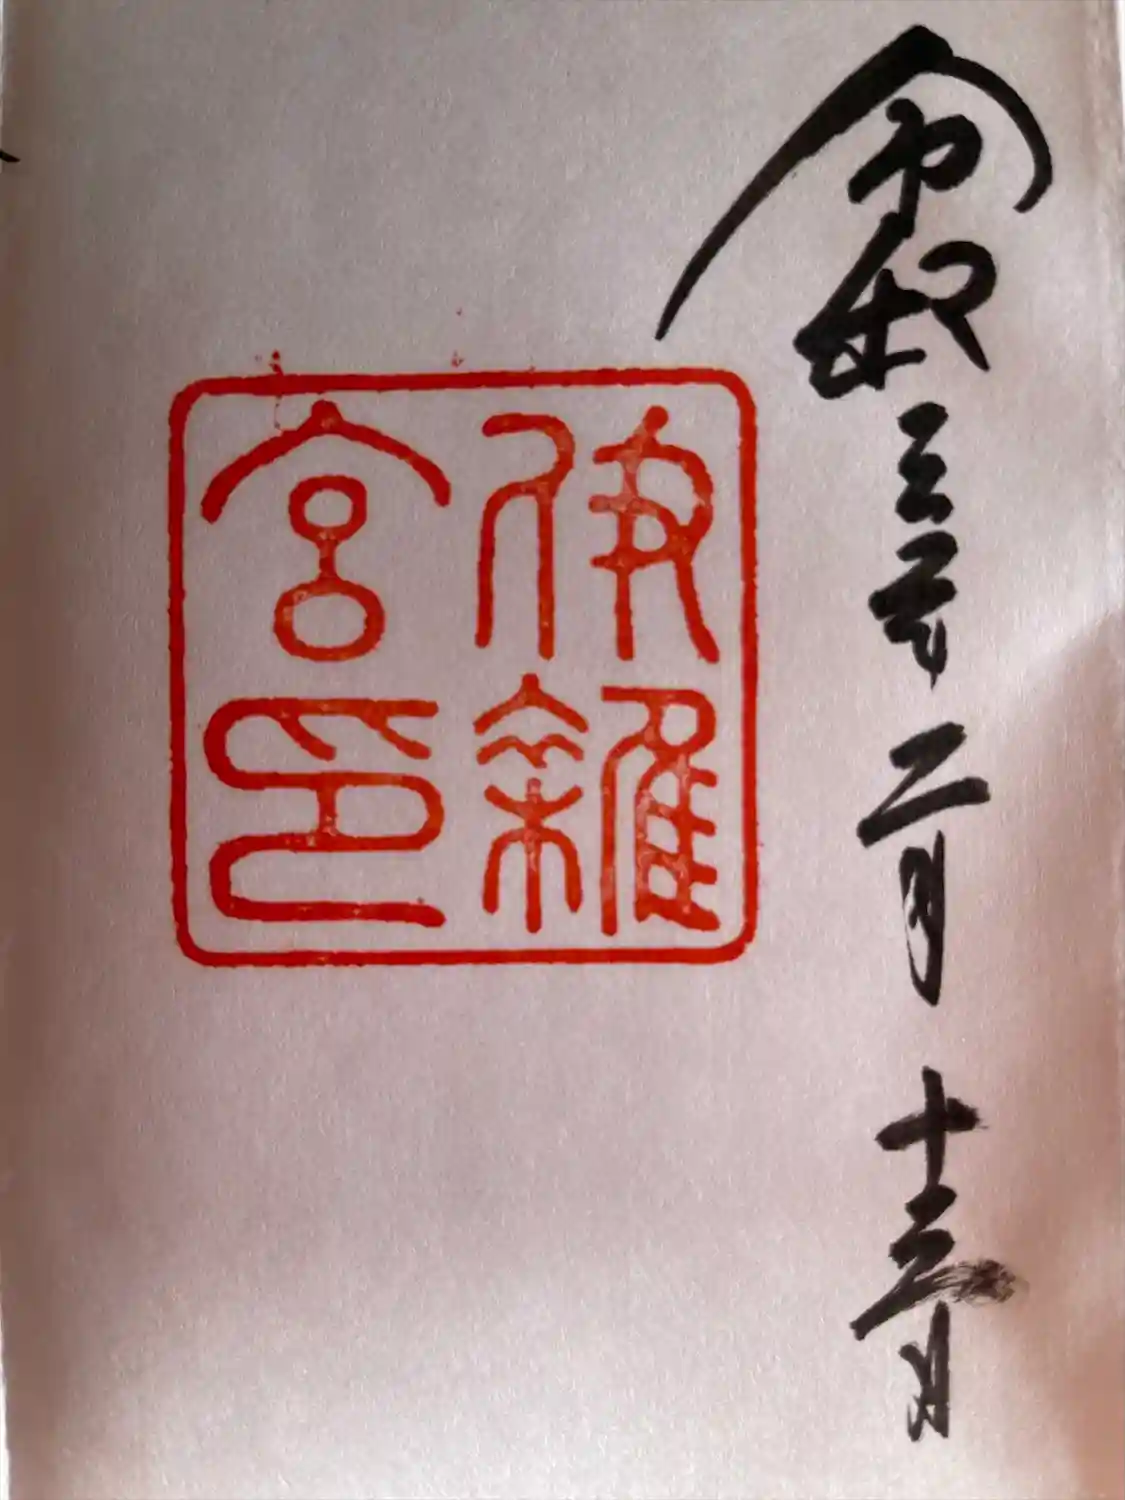 令和三年二月十三日
伊雜
宮印